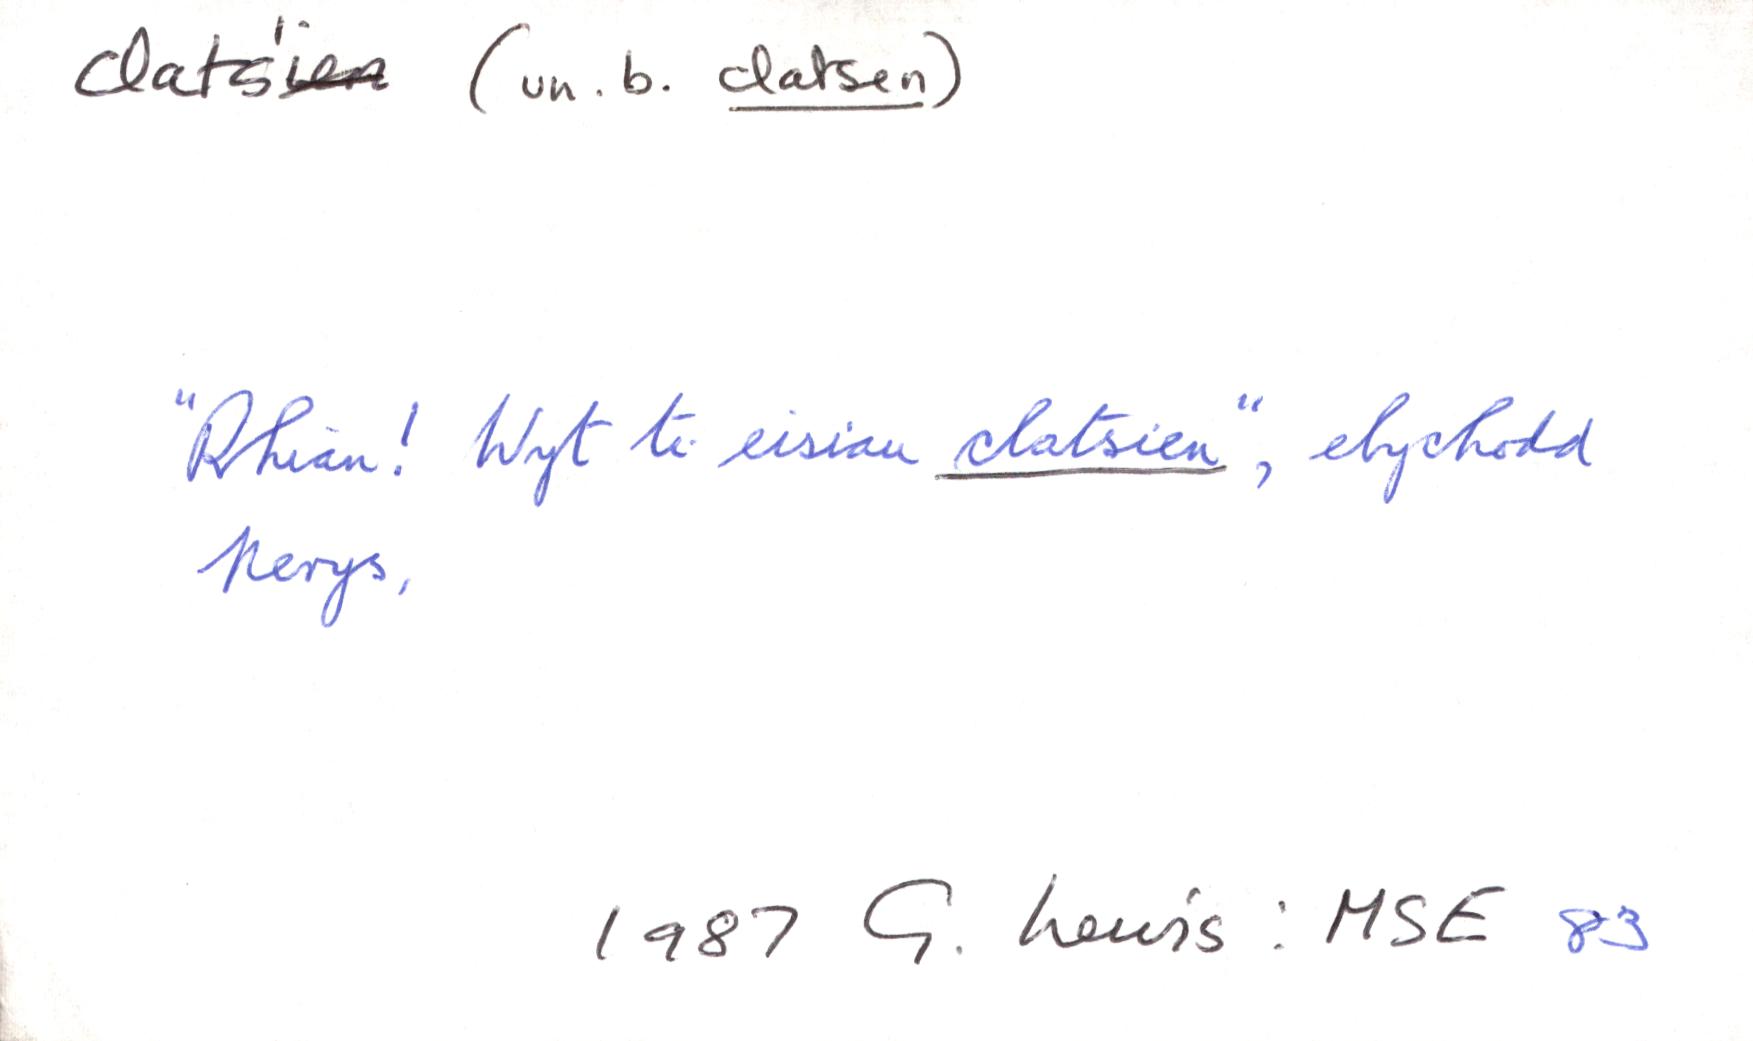 clats'ien (un. b. clatsen)
"Rhian! Wyt ti eisiau clatsien", ebychodd
Nerys,
1987 G. Lewis : MSE 83